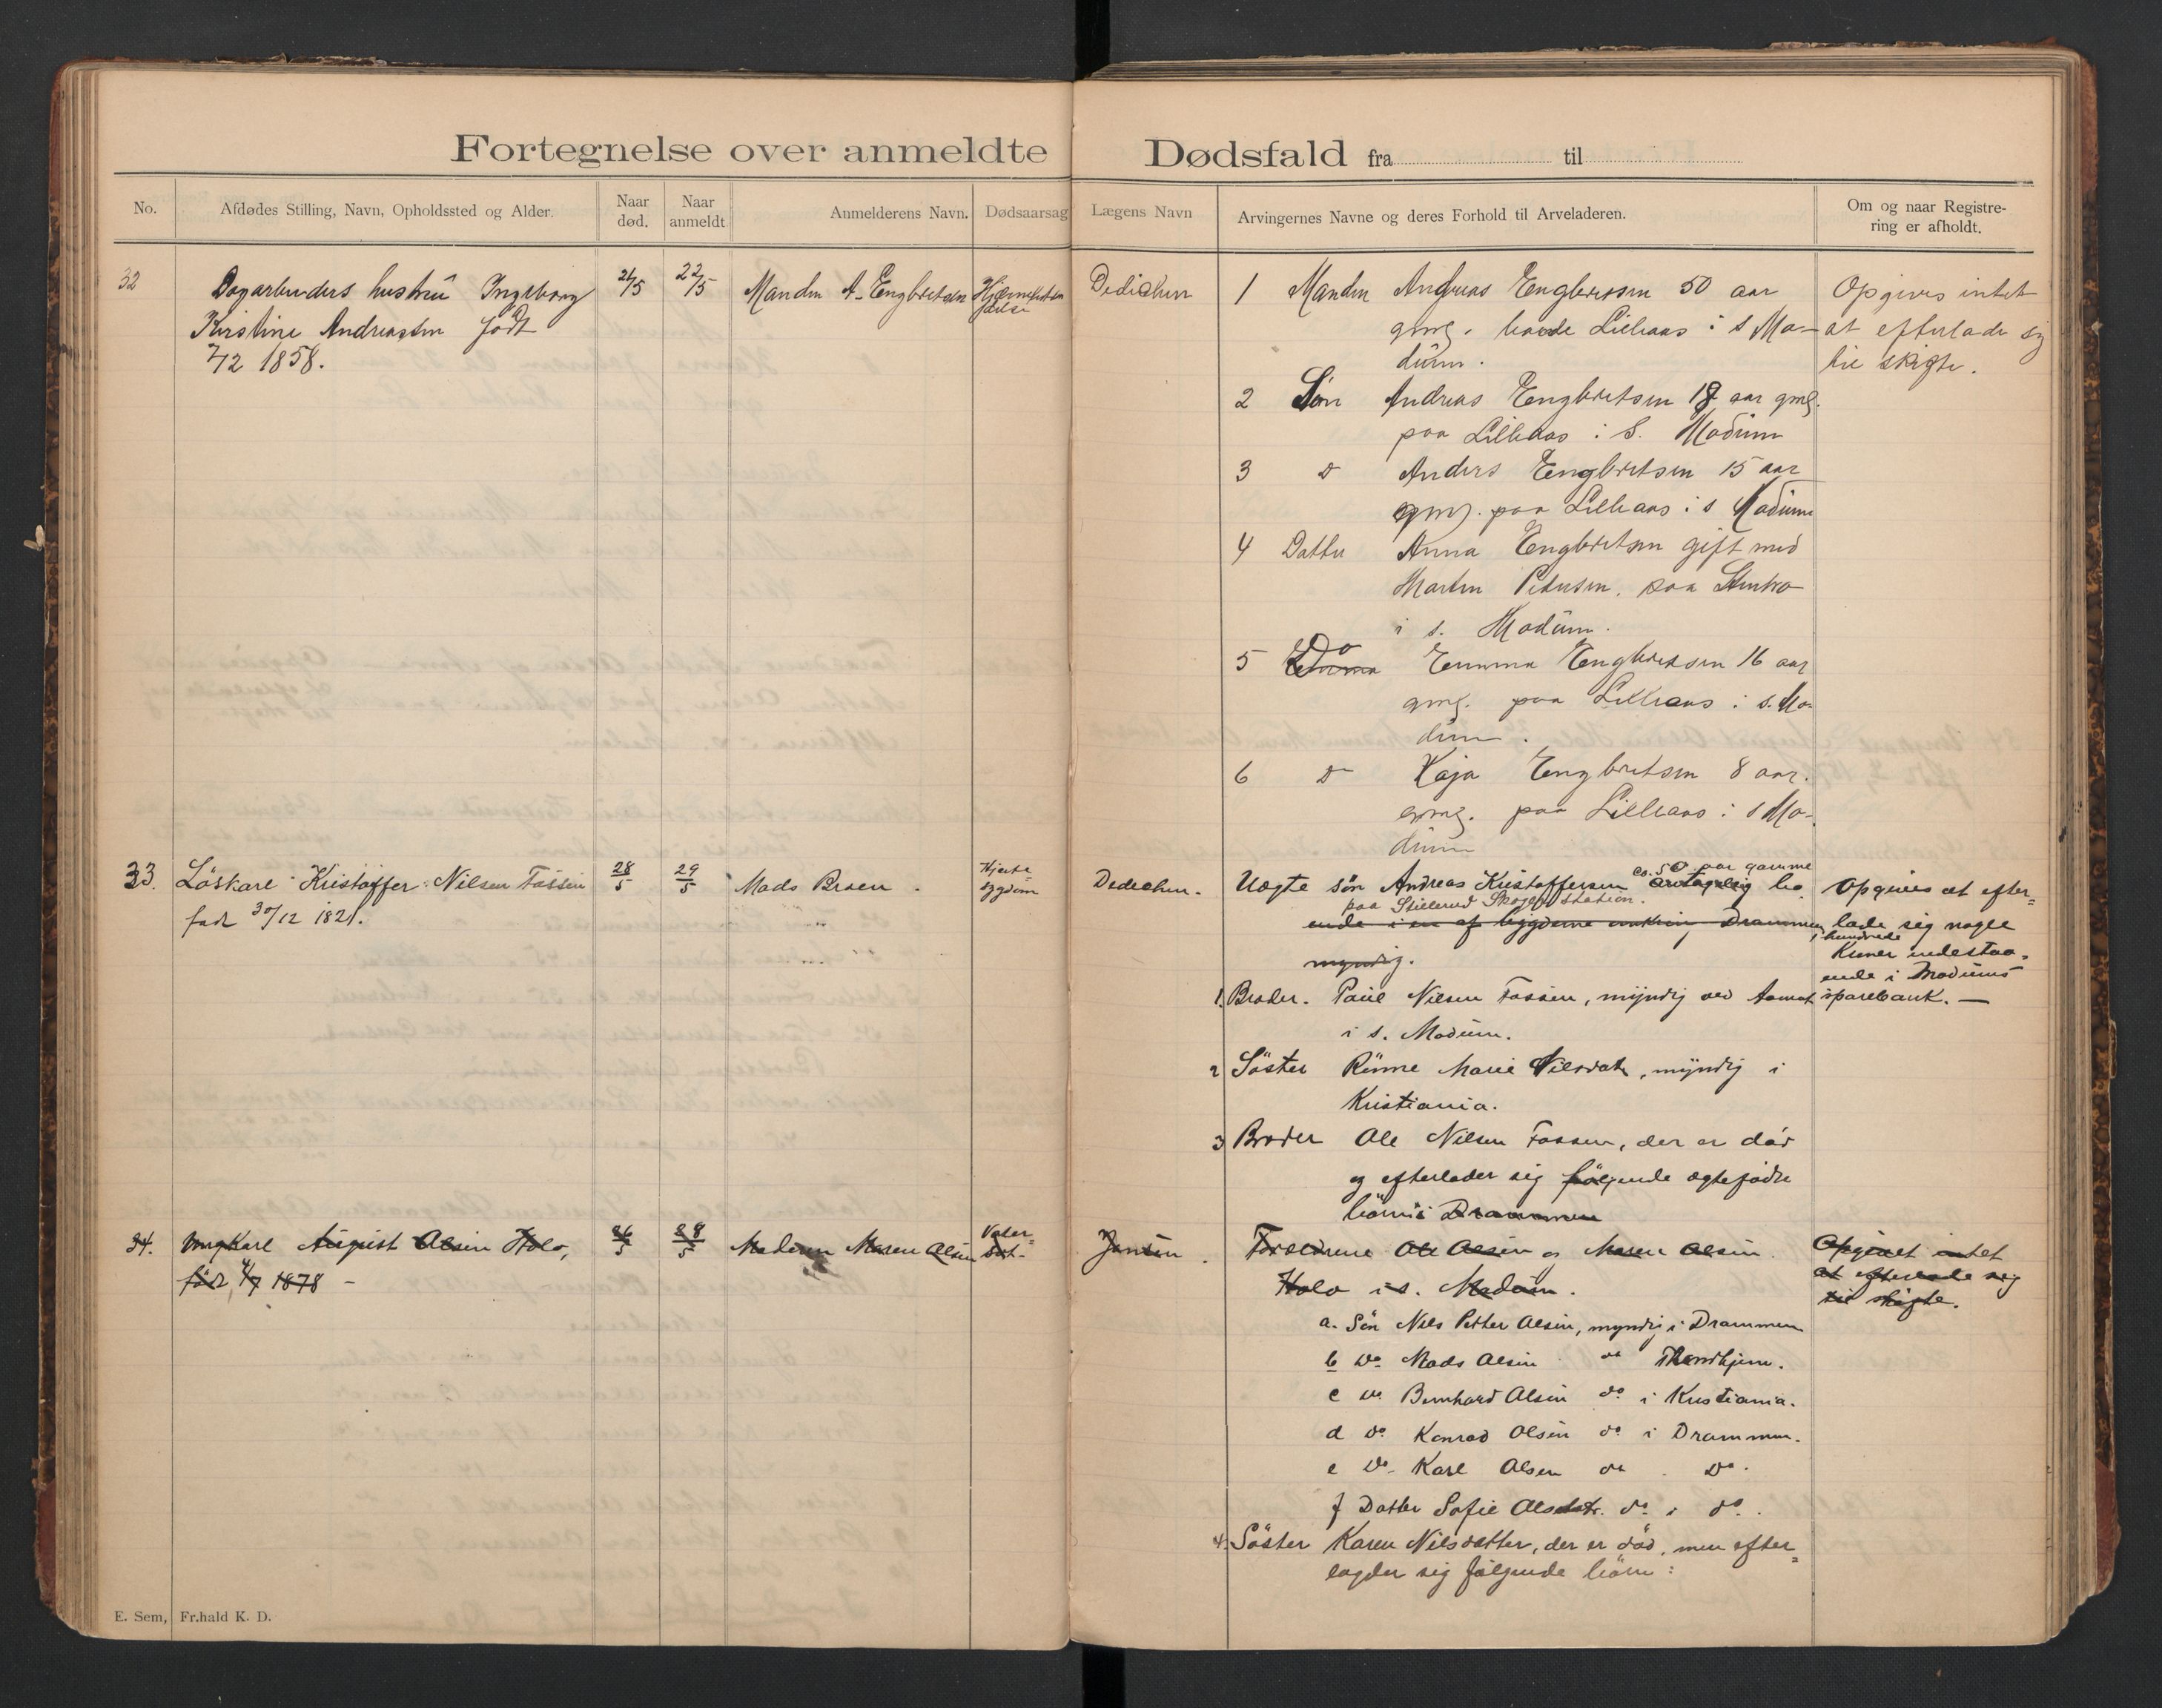 Fortegnelse over anmeldte Dødsfald fra til
No.
Afdødes Stilling, Navn, Opholdssted og Alder.
Naar
død.
Naar
anmeldt
Anmelderens Navn.
Dødsaarsag
Lægens Navn
Arvingernes Navne og deres Forhold til Arveladeren.
Om og naar Registre-
ring er afholdt.
32
Dagarbeiders hustru Ingeborg
Kirstine Andreasen født
7/12 1858.
21/5
22/5
Manden A. Engbretsen
Dedichen
1 Manden Andreas Engbretsen 50 aar
gml. boede Lilleaas i s Mo-
dum.
2 Søn Andreas Engbretsen 18 aar gml.
paa Lilleaas i S. Modum
3 D Anders Engbretsen 15 aar
gml. paa Lilleaas i s Modum
4 Datter Anna Engbretsen gift med
Martin Petersen, paa
i s. Modum.
5 Emma Do Emma Engbretsen 16 aar
gml. paa Lilleaas i s. Mo-
dum.
6 D Kaja Engbretsen 8 aar.
gml. paa Lilleaas i s Mo-
dum
Opgives intet
at efterlade sig
til skifte.
33.
Löskarl Kristoffer Nilsen Fossen
født 30/12 1821.
28/5
29/5
Mads Braen.
Hjerte-
sygdom
Dedichen.
Uægte søn Andreas Kristoffersen ca. 50 aar gamme antagelig bo
paa Stillerud Skoger station.
ende i en af bygderne omkring Drammen
myndig.
1. Broder. Paul Nilsen Fossen, myndig ved Aamot
i s. Modum.
2 Söster Rönne Marie Nilsdatr, myndig i
Kristiania.
3 Broder Ole Nilsen Fossen, der er död
og efterlader sig fölgende ægtefödte
börn i Drammen
Opgives at efter=
lade sig nogle
hundrede
Kroner indestaa-
ende i Modums
sparebank. —
34.
Ungkarl August Olsen Holo,
född 4/7 1878 -
26/5
28/5
Madam Maren Olsen
Vater-
sot-
Jensen.
Forældrene Ole Olsen og Maren Olsen.
Holo i s. Modum.
Opgivet intet
at efterlade sig
til skifte.
a. Sön Nils Petter Olsen, myndig i Drammen
b Do Mads Olsen do Throndhjem.
c Do. Bernhard Olsen do i Kristiania.
d Do Konrad Olsen do i Drammen.
e Do. Karl Olsen do. Do.
f Datter Sofie Olsdatr. do i do.
4. Söster Karen Nilsdatter, der er död, men efter=
lagder sig fölgende börn:
E. Sem, Fr.hald K. D.